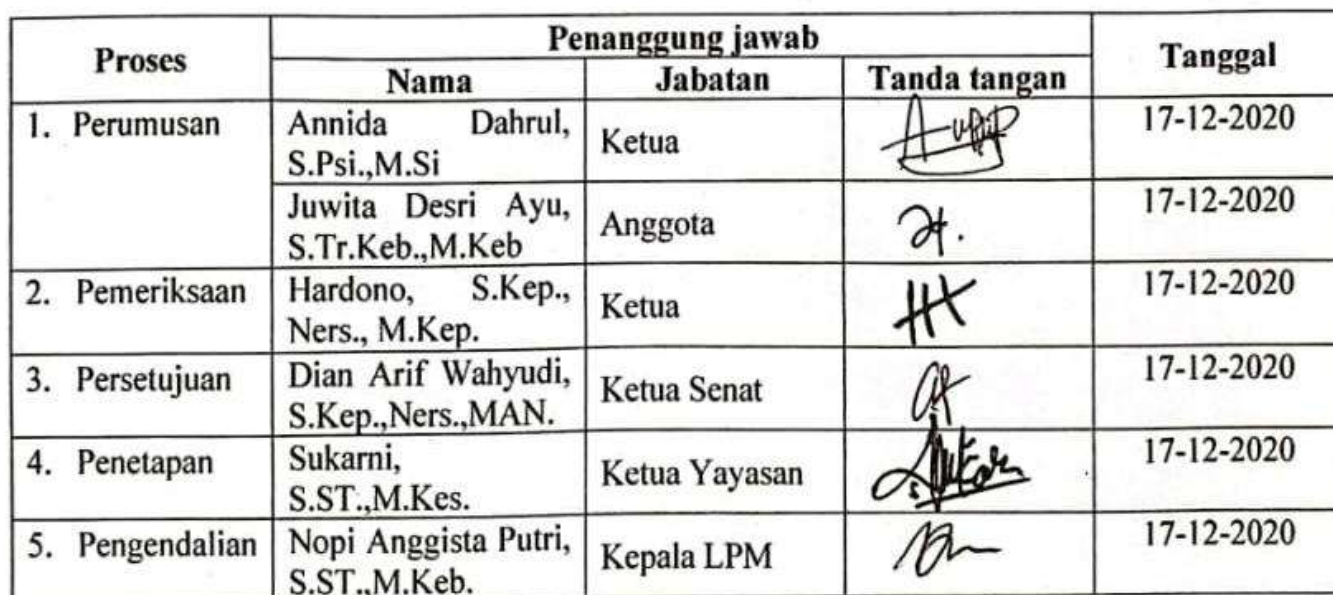 Proses
Penanggung jawab
Tanggal
Nama
Jabatan
Tanda tangan
1. Perumusan
Annida Dahrul,
S.Psi.,M.Si
Ketua
17-12-2020
Juwita Desri Ayu,
S.Tr.Keb.,M.Keb
Anggota
17-12-2020
2. Pemeriksaan
Hardono, S.Kep.,
Ners., M.Kep.
Ketua
17-12-2020
3. Persetujuan
Dian Arif Wahyudi,
S.Kep.,Ners.,MAN.
Ketua Senat
17-12-2020
4. Penetapan
Sukarni,
S.ST.,M.Kes.
Ketua Yayasan
17-12-2020
5. Pengendalian
Nopi Anggista Putri,
S.ST.,M.Keb.
Kepala LPM
17-12-2020